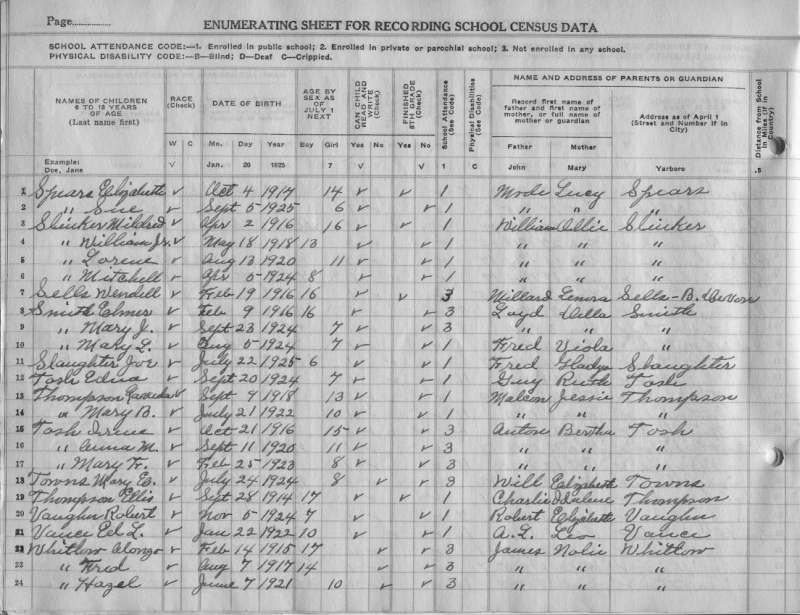 Page
ENUMERATING SHEET FOR RECORDING SCHOOL CENSUS DATA
SCHOOL ATTENDANCE CODE:—1. Enrolled in public school; 2. Enrolled in private or parochial school; 3. Not enrolled in any school.
PHYSICAL DISABILITY CODE:—B—Blind; D—Deaf C—Crippled.
NAMES OF CHILDREN 6 TO 18 YEARS OF AGE (Last name first) RACE (Check) DATE OF BIRTH AGE BY SEX AS OF JULY 1 NEXT CAN CHILD READ AND WRITE (Check) FINISHED 8TH GRADE (Check) School Attendance (See Code) Physical Disabilities (See Code) NAME AND ADDRESS OF PARENTS OR GUARDIAN Distance from School in Miles (If in Country)
Record first name of father and first name of mother, or full name of mother or guardian Address as of April 1 (Street and Number if in City)
W C Mo. Day Year Boy Girl Yes No Yes No Father Mother
Example: Doe, Jane V Jan. 20 1925 7 V V 1 C John Mary Yarboro .5
1 Spears Elizabeth v Oct 4 1917 14 v v 1 Mode Lucy Spears
2 " Sue v Sept 5 1925 6 v v 1 " " "
3 Slinker Mildred v Apr 2 1916 16 v v 1 William Ollie Slinker
4 " William Jr. v May 18 1918 13 v v 1 " " "
5 " Lorene v Aug 13 1920 11 v v 1 " " "
6 " Mitchell v Apr 5 1924 8 v v 1 " " "
7 Sells Wendell v Feb 19 1916 16 v v 3 Millard Lenora Sells-B.
8 Smith Elmer v Feb 9 1916 16 v v 3 Loyd Della Smith
9 " Mary J. v Sept 23 1924 7 v v 3 " " "
10 " Mary L. v Aug 5 1924 7 v v 1 Fred Viola "
11 Slaughter Joe v July 22 1925 6 v v 1 Fred Gladys Slaughter
12 Tosh Edna v Sept 20 1924 7 v v 1 Guy Ruth Tosh
13 Thompson v Sept 9 1918 13 v v 1 Malcon Jessie Thompson
14 " Mary B. v July 21 1922 10 v v 1 " " "
15 Tosh Irene v Oct 21 1916 15 v v 3 Anton Bertha Tosh
16 " Anna M. v Sept 11 1920 11 v v 3 " " "
17 " Mary F. v Feb 25 1923 8 v v 3 " " "
18 Towns Mary E. v July 24 1924 8 v v 3 Will Elizabeth Towns
19 Thompson Ellis v Sept 28 1914 17 v v 1 Charlie Thompson
20 Vaughn Robert v Nov 5 1924 7 v v 1 Robert Elizabeth Vaughn
21 Vance Ed L. v Jan 22 1922 10 v v 1 A.L. Leo Vance
22 Whitlow Alonzo v Feb 14 1915 17 v v 3 James Nolie Whitlow
23 " Fred v Aug 7 1917 14 v v 3 " " "
24 " Hazel v June 7 1921 10 v v 3 " " "